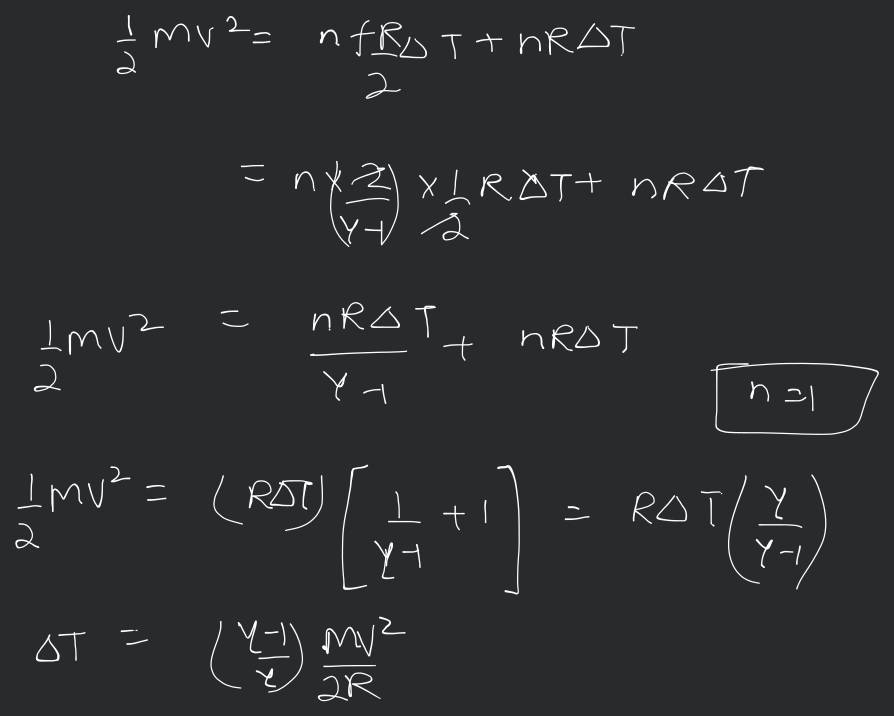 ½ mv² = n fR/2 ΔT + nRΔT
= n × (2/γ-1) × 1/2 RΔT + nRΔT
½ mv² = nRΔT/γ-1 + nRΔT
n = 1
½ mv² = (RΔT) [1/γ-1 + 1] = RΔT (γ/γ-1)
ΔT = (γ-1/γ) mv²/2R